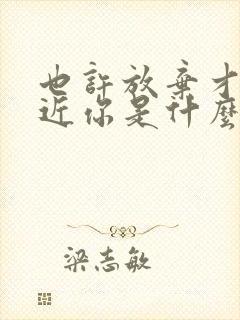 也許放棄才
近你是什麼
梁志敏